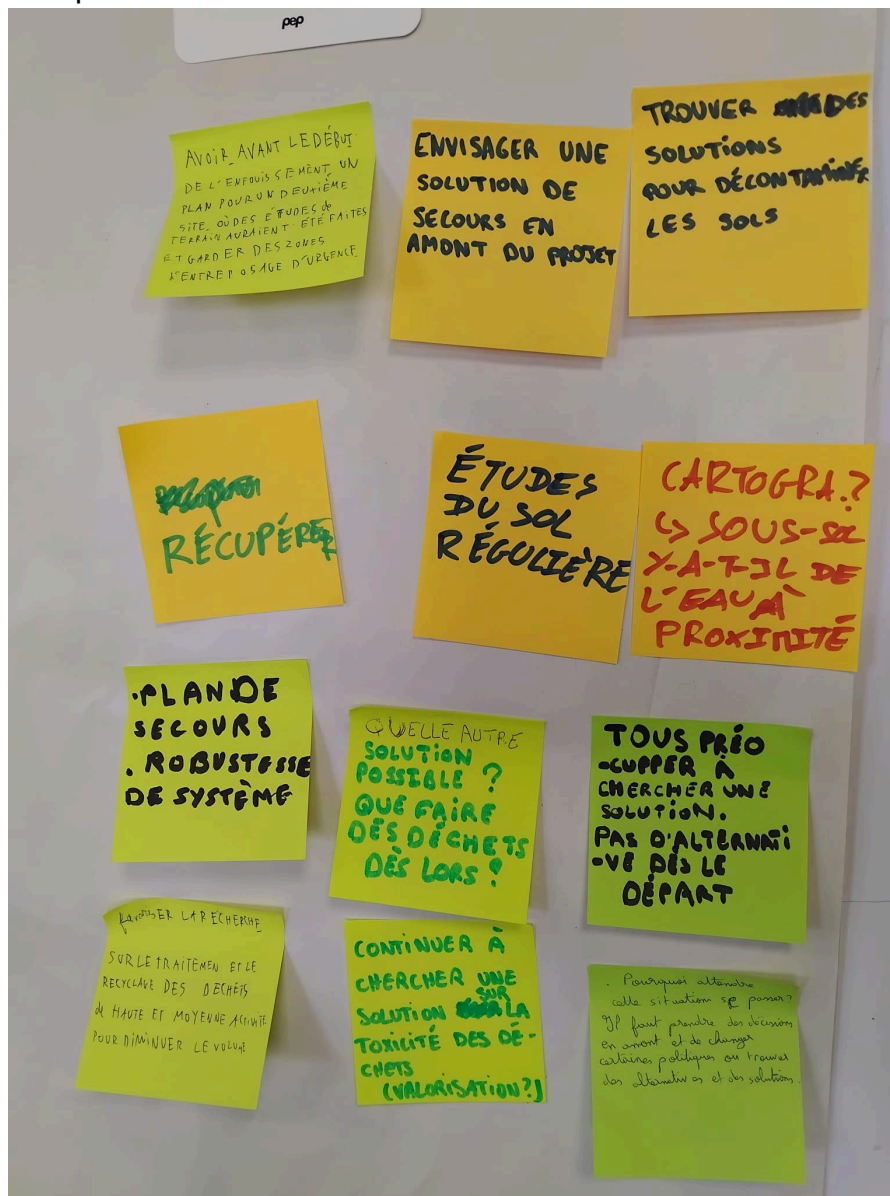 pep
AVOIR AVANT LE DÉBUT
DE L'ENFOUISSEMENT, UN
PLAN POUR UN DEUXIÈME
SITE, OÙ DES ÉTUDES de
TERRAIN AURAIENT ÉTÉ FAITES
ET GARDER DES ZONES
D'ENTREPOSAGE D'URGENCE
ENVISAGER UNE
SOLUTION DE
SECOURS EN
AMONT DU PROJET
TROUVER DES
SOLUTIONS
POUR DÉCONTAMINER
LES SOLS
RÉCUPÉRER
ÉTUDES
DU SOL
RÉGULIÈRE
CARTOGRA.?
↳ SOUS-SOL
Y-A-T-IL DE
L'EAU À
PROXIMITÉ
.PLAN DE
SECOURS
. ROBUSTESSE
DE SYSTÈME
QUELLE AUTRE
SOLUTION
POSSIBLE ?
QUE FAIRE
DES DÉCHETS
DÈS LORS ?
TOUS PRÉO
-CUPPER À
CHERCHER UNE
SOLUTION.
PAS D'ALTERNATI
-VE DÈS LE
DÉPART
favoriser LA RECHERCHE
SUR LE TRAITEMEN ET LE
RECYCLAGE DES DECHETS
de HAUTE ET MOYENNE ACTIVITÉ
POUR DIMINUER LE VOLUME
CONTINUER À
CHERCHER UNE
SOLUTION SUR LA
TOXICITÉ DES DÉ-
CHETS
(VALORISATION?)
. Pourquoi attendre
cette situation se passer?
Il faut prendre des décisions
en amont et de changer
certaines politiques ou trouver
des alternatives et des solutions.